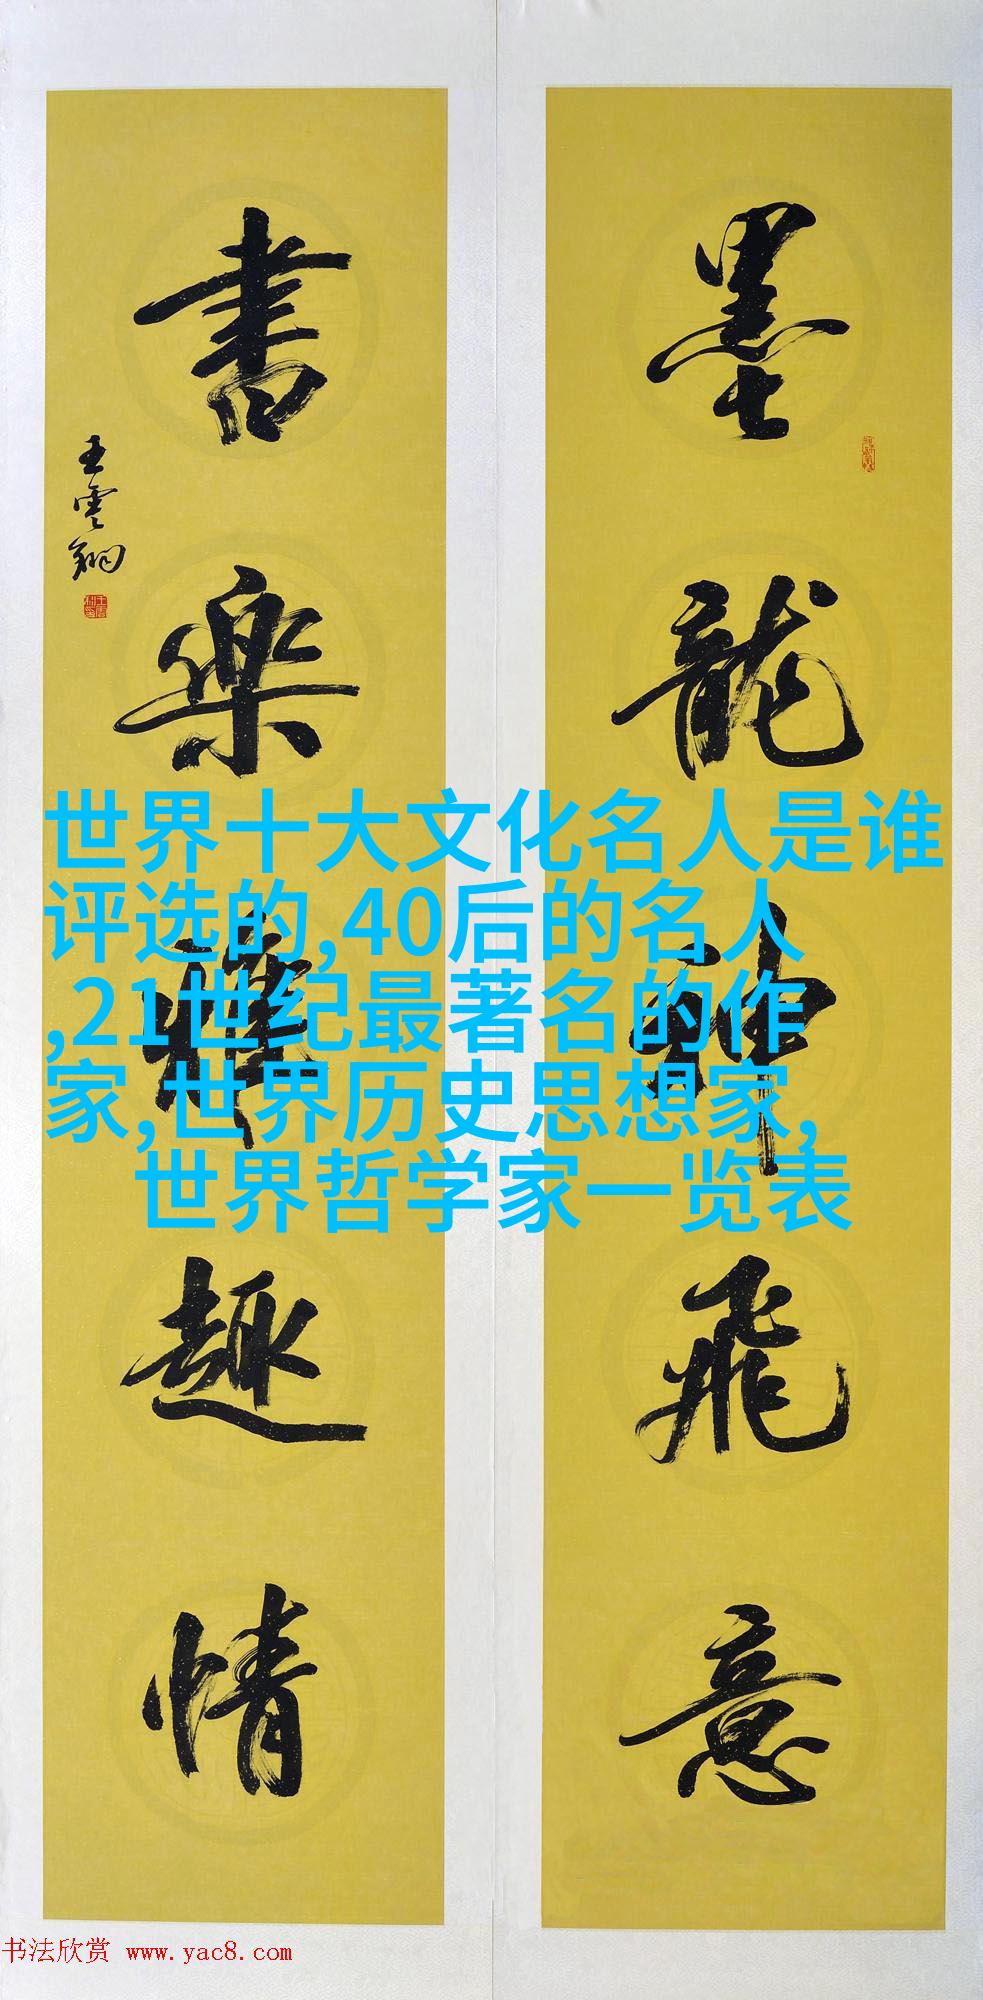 墨龍神飛意
書樂雅趣情
王雲翔
世界十大文化名人是谁
评选的,40后的名人
,21世纪最著名的作
家,世界历史思想家,
世界哲学家一览表
书法欣赏 www.yac8.com